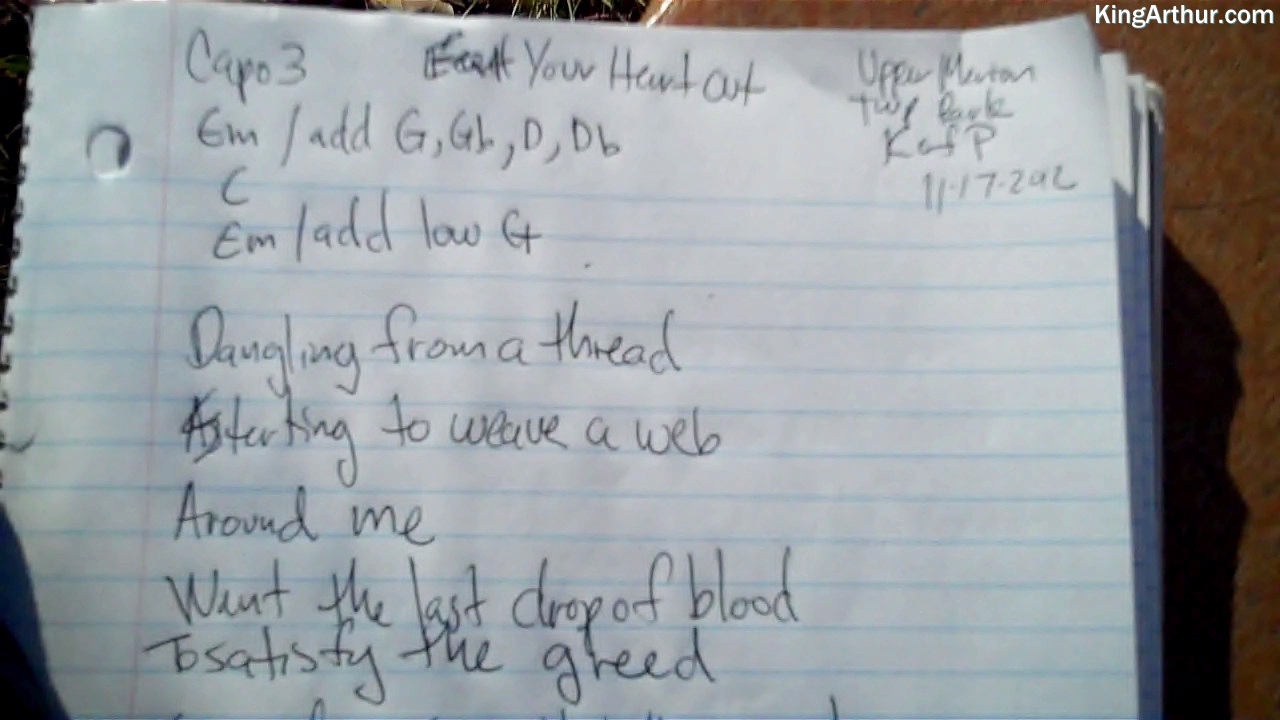 KingArthur.com
Capo 3 Eat Your Heart Out
Upper Merion
Twp Park
K of P
11·17·2012
Em / add G, Gb, D, Db
C
Em / add low G
Dangling from a thread
Starting to weave a web
Around me
Want the last drop of blood
To satisfy the greed